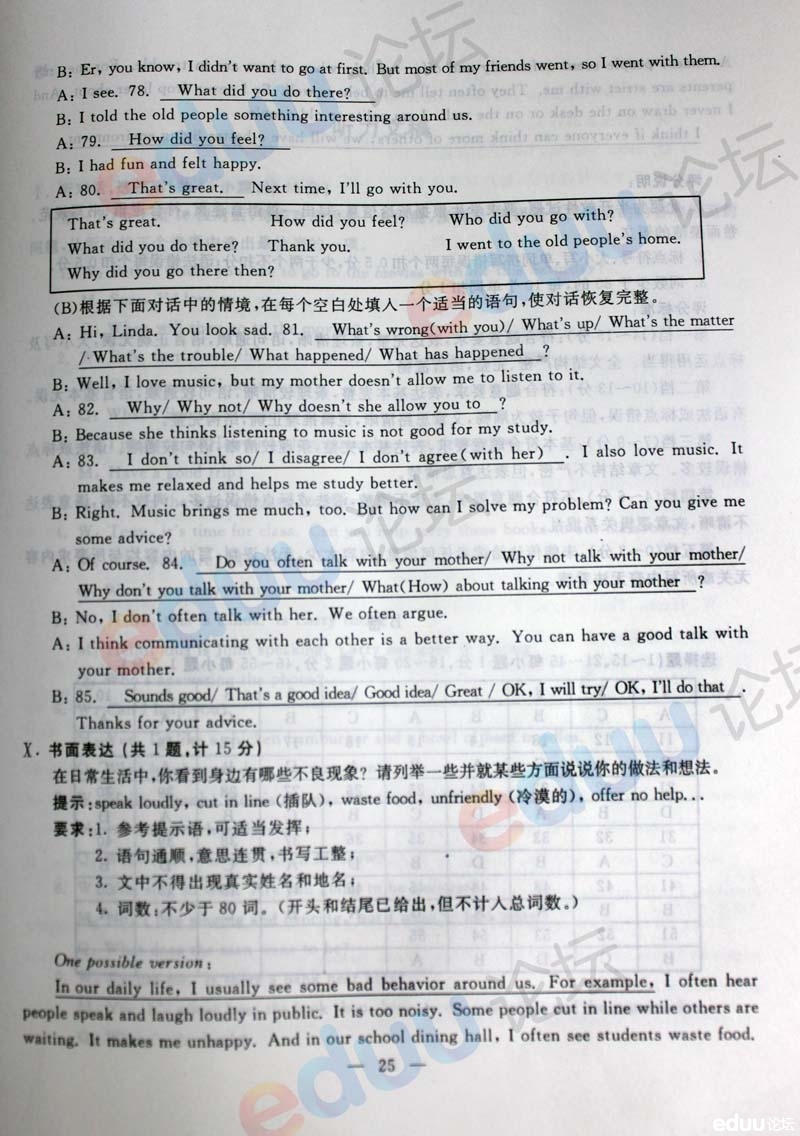 B: Er, you know, I didn't want to go at first. But most of my friends went, so I went with them.
A: I see. 78. What did you do there?
B: I told the old people something interesting around us.
A: 79. How did you feel?
B: I had fun and felt happy.
A: 80. That's great. Next time, I'll go with you.
That's great. How did you feel? Who did you go with?
What did you do there? Thank you. I went to the old people's home.
Why did you go there then?
(B)根据下面对话中的情境,在每个空白处填入一个适当的语句,使对话恢复完整。
A: Hi, Linda. You look sad. 81. What's wrong(with you)/ What's up/ What's the matter
/ What's the trouble/ What happened/ What has happened ?
B: Well, I love music, but my mother doesn't allow me to listen to it.
A: 82. Why/ Why not/ Why doesn't she allow you to ?
B: Because she thinks listening to music is not good for my study.
A: 83. I don't think so/ I disagree/ I don't agree(with her) . I also love music. It
makes me relaxed and helps me study better.
B: Right. Music brings me much, too. But how can I solve my problem? Can you give me
some advice?
A: Of course. 84. Do you often talk with your mother/ Why not talk with your mother/
Why don't you talk with your mother/ What(How) about talking with your mother ?
B: No, I don't often talk with her. We often argue.
A: I think communicating with each other is a better way. You can have a good talk with
your mother.
B: 85. Sounds good/ That's a good idea/ Good idea/ Great / OK, I will try/ OK, I'll do that .
Thanks for your advice.
Ⅹ. 书面表达 (共 1 题,计 15 分)
在日常生活中,你看到身边有哪些不良现象? 请列举一些并就某些方面说说你的做法和想法。
提示:speak loudly, cut in line (插队), waste food, unfriendly (冷漠的), offer no help...
要求:1. 参考提示语,可适当发挥;
2. 语句通顺,意思连贯,书写工整;
3. 文中不得出现真实姓名和地名;
4. 词数:不少于 80 词。(开头和结尾已给出,但不计入总词数。)
One possible version:
In our daily life, I usually see some bad behavior around us. For example, I often hear
people speak and laugh loudly in public. It is too noisy. Some people cut in line while others are
waiting. It makes me unhappy. And in our school dining hall, I often see students waste food.
— 25 —
eduu论坛